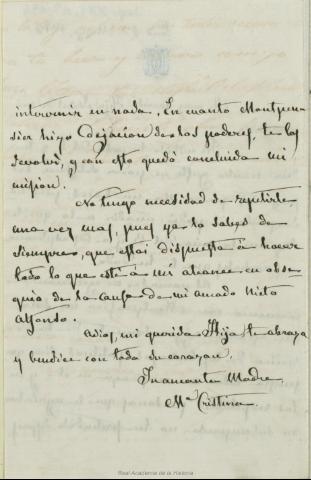 intervenir en nada. En cuanto Montpen-
sier hizo dejacion de los poderes, te los
devolvi, y con esto quedó concluida mi
mision.
No tengo necesidad de repetirte
una vez mas, pues ya lo sabes de
siempre, que estoi dispuesta á hacer
todo lo que esté á mi alcance en obse-
quio de la causa de mi amado Nieto
Alfonso.
Adios, mi querida Hija, te abraza
y bendice con todo su corazon,
Tu amante Madre
Mª Cristina.
Real Academia de la Historia